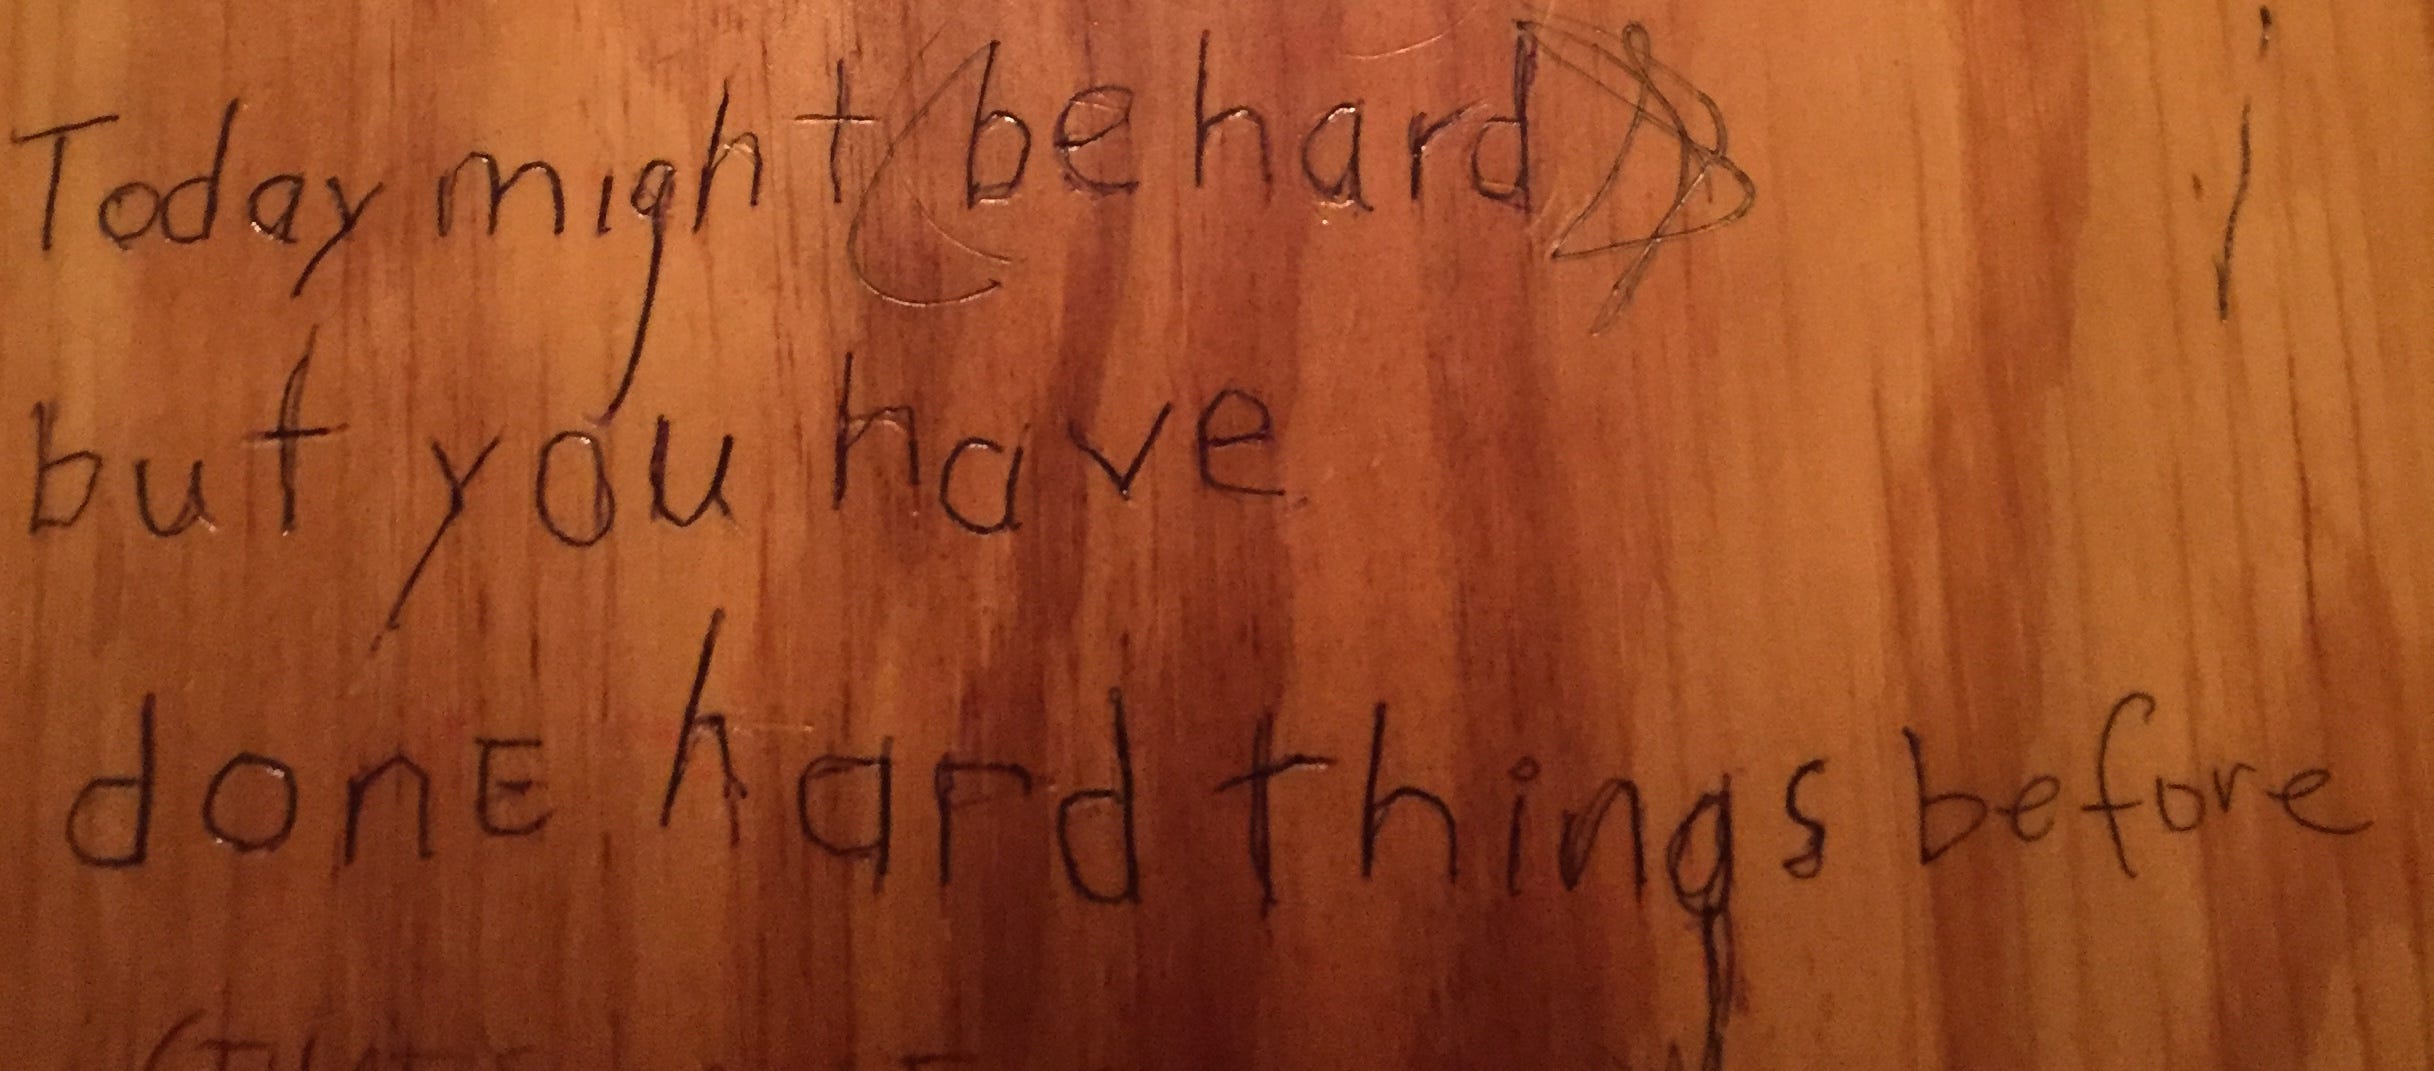 Today might be hard
but you have
donE hard things before